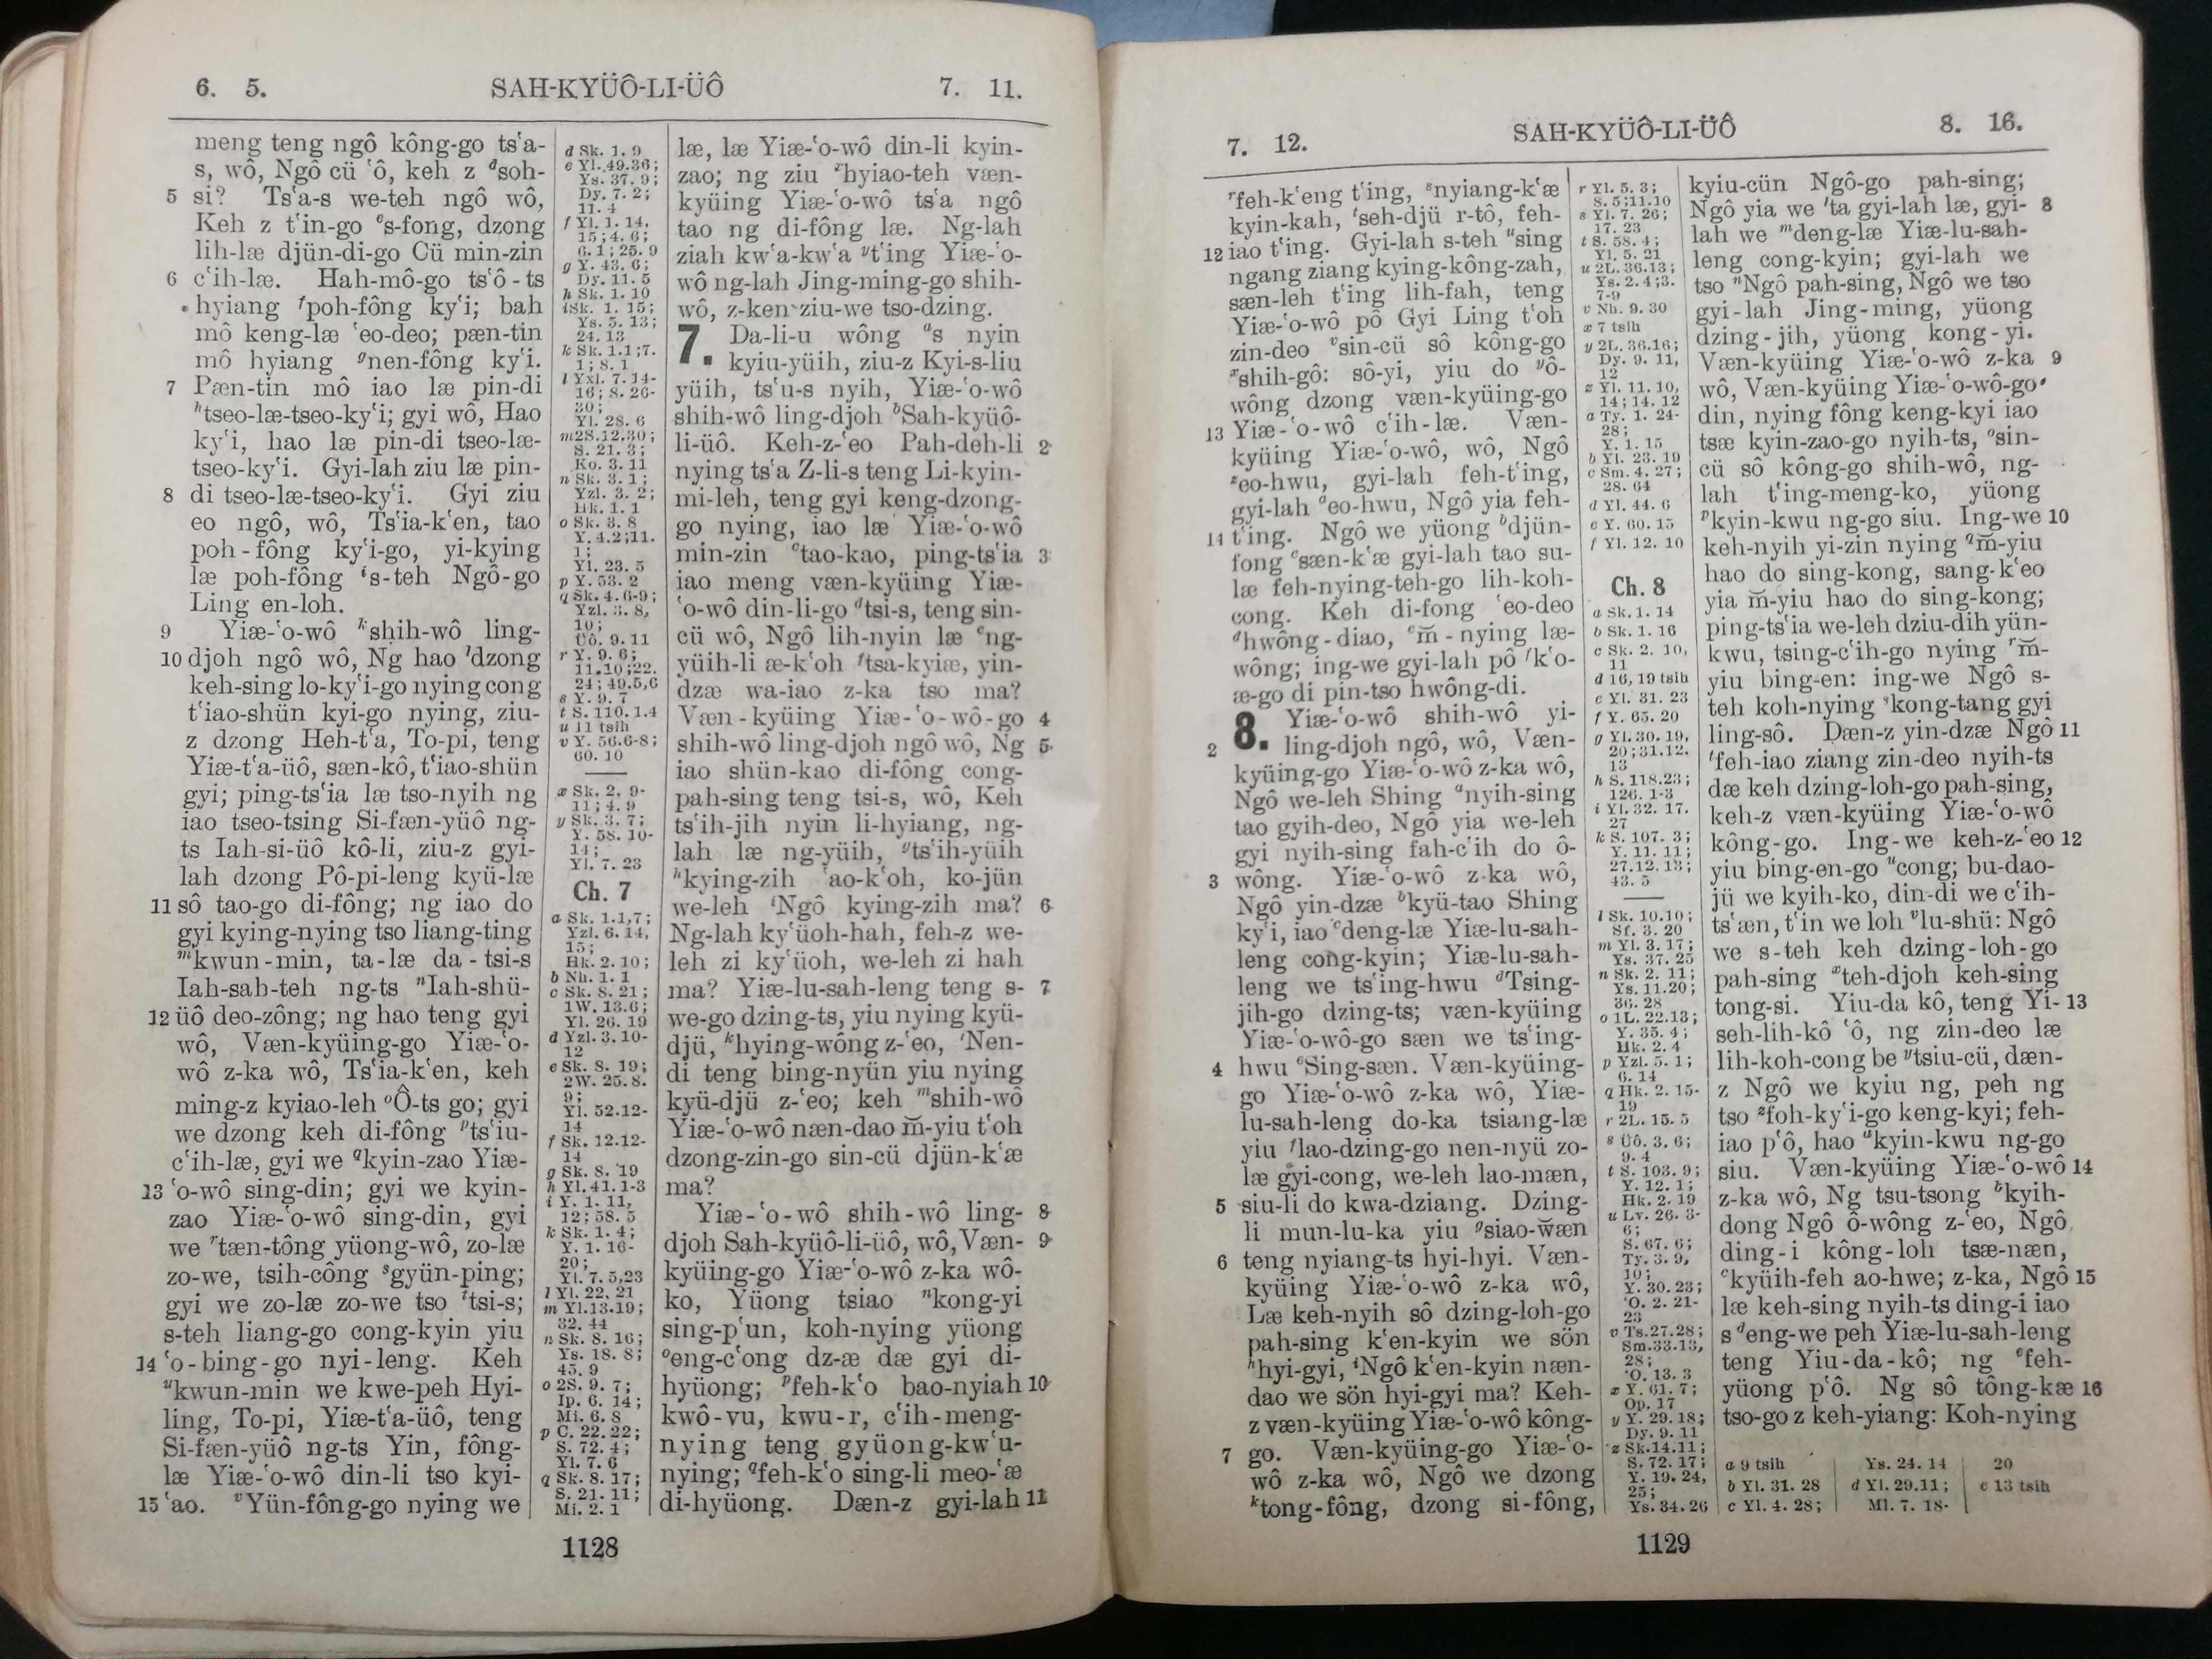 6. 5. SAH-KYÜÔ-LI-ÜÔ 7. 11.
meng teng ngô kông-go ts‘a-
s, wô, Ngô cü ‘ô, keh z ᵈsoh-
5 si? Ts‘a-s we-teh ngô wô,
Keh z t‘in-go ᵉs-fong, dzong
lih-læ djün-di-go Cü min-zin
6 c‘ih-læ. Hah-mô-go ts‘ô-ts
hyiang ᶠpoh-fông ky‘i; bah
mô keng-læ ‘eo-deo; pæn-tin
mô hyiang ᵍnen-fông ky‘i.
7 Pæn-tin mô iao læ pin-di
ʰtseo-læ-tseo-ky‘i; gyi wô, Hao
ky‘i, hao læ pin-di tseo-læ-
tseo-ky‘i. Gyi-lah ziu læ pin-
8 di tseo-læ-tseo-ky‘i. Gyi ziu
eo ngô, wô, Ts‘ia-k‘en, tao
poh-fông ky‘i-go, yi-kying
læ poh-fông ⁱs-teh Ngô-go
Ling en-loh.
9 Yiæ-‘o-wô ᵏshih-wô ling-
10 djoh ngô wô, Ng hao ˡdzong
keh-sing lo-ky‘i-go nying cong
t‘iao-shün kyi-go nying, ziu-
z dzong Heh-t‘a, To-pi, teng
Yiæ-t‘a-üô, sæn-kô, t‘iao-shün
gyi; ping-ts‘ia læ tso-nyih ng
iao tseo-tsing Si-fæn-yüô ng-
ts Iah-si-üô kô-li, ziu-z gyi-
lah dzong Pô-pi-leng kyü-læ
11 sô tao-go di-fông; ng iao do
gyi kying-nying tso liang-ting
ᵐkwun-min, ta-læ da-tsi-s
Iah-sah-teh ng-ts ⁿIah-shü-
12 üô deo-zông; ng hao teng gyi
wô, Væn-kyüing-go Yiæ-‘o-
wô z-ka wô, Ts‘ia-k‘en, keh
ming-z kyiao-leh ᵒÔ-ts go; gyi
we dzong keh di-fông ᵖts‘iu-
c‘ih-læ, gyi we ᑫkyin-zao Yiæ-
13 ‘o-wô sing-din; gyi we kyin-
zao Yiæ-‘o-wô sing-din, gyi
we ʳtæn-tông yüong-wô, zo-læ
zo-we, tsih-công ˢgyün-ping;
gyi we zo-læ zo-we tso ᵗtsi-s;
s-teh liang-go cong-kyin yiu
14 ‘o-bing-go nyi-leng. Keh
ᵘkwun-min we kwe-peh Hyi-
ling, To-pi, Yiæ-t‘a-üô, teng
Si-fæn-yüô ng-ts Yin, fông-
læ Yiæ-‘o-wô din-li tso kyi-
15 ‘ao. ᵛYün-fông-go nying we
d Sk. 1. 9
e Yl. 49.36;
Ys. 37. 9;
Dy. 7. 2;
11. 4
f Yl. 1. 14,
15; 4. 6;
6. 1; 25. 9
g Y. 43. 6;
Dy. 11. 5
h Sk. 1. 10
i Sk. 1. 15;
Ys. 5. 13;
24. 13
k Sk. 1.1;7.
1; 8. 1
l Yxl. 7. 14-
16; 8. 26-
30;
Yl. 28. 6
m 2S. 12.30;
S. 21. 3;
Ko. 3. 11
n Sk. 3. 1;
Yzl. 3. 2;
Hk. 1. 1
o Sk. 3. 8
Y. 4.2;11.
1;
Yl. 23. 5
p Y. 53. 2
q Sk. 4. 6-9;
Yzl. 3. 8,
10;
Üô. 9. 11
r Y. 9. 6;
11.10;22.
24; 49.5,6
s Y. 9. 7
t S. 110. 1.4
u 11 tsih
v Y. 56.6-8;
60. 10
x Sk. 2. 9-
11; 4. 9
y Sk. 3. 7;
Y. 58. 10-
14;
Yl. 7. 23
Ch. 7
a Sk. 1.1,7;
Yzl. 6. 14,
15;
Hk. 2. 10;
b Nh. 1. 1
c Sk. 8. 21;
1W. 13.6;
Yl. 26. 19
d Yzl. 3. 10-
12
e Sk. 8. 19;
2W. 25. 8.
9;
Yl. 52.12-
14
f Sk. 12.12-
14
g Sk. 8. 19
h Yl. 41. 1-3
i Y. 1. 11,
12; 58. 5
k Sk. 1. 4;
Y. 1. 16-
20;
Yl. 7. 5,23
l Yl. 22. 21
m Yl. 13.19;
32. 44
n Sk. 8. 16;
Ys. 18. 8;
45. 9
o 2S. 9. 7;
Ip. 6. 14;
Mi. 6. 8
p C. 22. 22;
S. 72. 4;
Yl. 7. 6
q Sk. 8. 17;
S. 21. 11;
Mi. 2. 1
læ, læ Yiæ-‘o-wô din-li kyin-
zao; ng ziu ˣhyiao-teh væn-
kyüing Yiæ-‘o-wô ts‘a ngô
tao ng di-fông læ. Ng-lah
ziah kw‘a-kw‘a ʸt‘ing Yiæ-‘o-
wô ng-lah Jing-ming-go shih-
wô, z-ken ziu-we tso-dzing.
7. Da-li-u wông ᵃs nyin
kyiu-yüih, ziu-z Kyi-s-liu
yüih, ts‘u-s nyih, Yiæ-‘o-wô
shih-wô ling-djoh ᵇSah-kyüô-
li-üô. Keh-z-‘eo Pah-deh-li 2
nying ts‘a Z-li-s teng Li-kyin-
mi-leh, teng gyi keng-dzong-
go nying, iao læ Yiæ-‘o-wô
min-zin ᶜtao-kao, ping-ts‘ia 3
iao meng væn-kyüing Yiæ-
‘o-wô din-li-go ᵈtsi-s, teng sin-
cü wô, Ngô lih-nyin læ ᵉng-
yüih-li æ-k‘oh ᶠtsa-kyiæ, yin-
dzæ wa-iao z-ka tso ma?
Væn-kyüing Yiæ-‘o-wô-go 4
shih-wô ling-djoh ngô wô, Ng 5
iao shün-kao di-fông cong-
pah-sing teng tsi-s, wô, Keh
ts‘ih-jih nyin li-hyiang, ng-
lah læ ng-yüih, ᵍts‘ih-yüih
ʰkying-zih ‘ao-k‘oh, ko-jün
we-leh ⁱNgô kying-zih ma? 6
Ng-lah ky‘üoh-hah, feh-z we-
leh zi ky‘üoh, we-leh zi hah
ma? Yiæ-lu-sah-leng teng s- 7
we-go dzing-ts, yiu nying kyü-
djü, ᵏhying-wông z-‘eo, ˡNen-
di teng bing-nyün yiu nying
kyü-djü z-‘eo; keh ᵐshih-wô
Yiæ-‘o-wô næn-dao m̆-yiu t‘oh
dzong-zin-go sin-cü djün-k‘æ
ma?
Yiæ-‘o-wô shih-wô ling- 8
djoh Sah-kyüô-li-üô, wô, Væn- 9
kyüing-go Yiæ-‘o-wô z-ka wô-
ko, Yüong tsiao ⁿkong-yi
sing-p‘un, koh-nying yüong
ᵒeng-c‘ong dz-æ dæ gyi di-
hyüong; ᵖfeh-k‘o bao-nyiah 10
kwô-vu, kwu-r, c‘ih-meng-
nying teng gyüong-kw‘u-
nying; ᑫfeh-k‘o sing-li meo-‘æ
di-hyüong. Dæn-z gyi-lah 11
1128
7. 12. SAH-KYÜÔ-LI-ÜÔ 8. 16.
ʳfeh-k‘eng t‘ing, ˢnyiang-k‘æ
kyin-kah, ᵗseh-djü r-tô, feh-
12 iao t‘ing. Gyi-lah s-teh ᵘsing
ngang ziang kying-kông-zah,
sæn-leh t‘ing lih-fah, teng
Yiæ-‘o-wô pô Gyi Ling t‘oh
zin-deo ᵛsin-cü sô kông-go
ˣshih-gô: sô-yi, yiu do ʸô-
wông dzong væn-kyüing-go
13 Yiæ-‘o-wô c‘ih-læ. Væn-
kyüing Yiæ-‘o-wô, wô, Ngô
ᶻeo-hwu, gyi-lah feh-t‘ing,
gyi-lah ᵃeo-hwu, Ngô yia feh-
14 t‘ing. Ngô we yüong ᵇdjün-
fong ᶜsæn-k‘æ gyi-lah tao su-
læ feh-nying-teh-go lih-koh-
cong. Keh di-fong ‘eo-deo
ᵈhwông-diao, ᵉm̆-nying læ-
wông; ing-we gyi-lah pô ᶠk‘o-
æ-go di pin-tso hwông-di.
8. Yiæ-‘o-wô shih-wô yi-
2 ling-djoh ngô, wô, Væn-
kyüing-go Yiæ-‘o-wô z-ka wô,
Ngô we-leh Shing ᵃnyih-sing
tao gyih-deo, Ngô yia we-leh
gyi nyih-sing fah-c‘ih do ô-
3 wông. Yiæ-‘o-wô z-ka wô,
Ngô yin-dzæ ᵇkyü-tao Shing
ky‘i, iao ᶜdeng-læ Yiæ-lu-sah-
leng cong-kyin; Yiæ-lu-sah-
leng we ts‘ing-hwu ᵈTsing-
jih-go dzing-ts; væn-kyüing
Yiæ-‘o-wô-go sæn we ts‘ing-
4 hwu ᵉSing-sæn. Væn-kyüing-
go Yiæ-‘o-wô z-ka wô, Yiæ-
lu-sah-leng do-ka tsiang-læ
yiu ᶠlao-dzing-go nen-nyü zo-
læ gyi-cong, we-leh lao-mæn,
5 siu-li do kwa-dziang. Dzing-
li mun-lu-ka yiu ᵍsiao-w̆æn
6 teng nyiang-ts hyi-hyi. Væn-
kyüing Yiæ-‘o-wô z-ka wô,
Læ keh-nyih sô dzing-loh-go
pah-sing k‘en-kyin we sön
ʰhyi-gyi, ⁱNgô k‘en-kyin næn-
dao we sön hyi-gyi ma? Keh-
z væn-kyüing Yiæ-‘o-wô kông-
7 go. Væn-kyüing-go Yiæ-‘o-
wô z-ka wô, Ngô we dzong
ᵏtong-fông, dzong si-fông,
r Yl. 5. 3;
8. 5;11.10
s Yl. 7. 26;
17. 23
t S. 58. 4;
Yl. 5. 21
u 2L. 36.13;
Ys. 2. 4;3.
7-9
v Nh. 9. 30
x 7 tsih
y 2L. 36.16;
Dy. 9. 11,
12
z Yl. 11. 10,
14; 14. 12
a Ty. 1. 24-
28;
Y. 1. 15
b Yl. 23. 19
c Sm. 4. 27;
28. 64
d Yl. 44. 6
e Y. 60. 15
f Yl. 12. 10
Ch. 8
a Sk. 1. 14
b Sk. 1. 16
c Sk. 2. 10,
11
d 16, 19 tsih
e Yl. 31. 23
f Y. 65. 20
g Yl. 30. 19,
20; 31.12.
13
h S. 118.23;
126. 1-3
i Yl. 32. 17.
27
k S. 107. 3;
Y. 11. 11;
27.12, 13;
43. 5
l Sk. 10.10;
Sf. 3. 20
m Yl. 3. 17;
Ys. 37. 25
n Sk. 2. 11;
Ys. 11.20;
36. 28
o 1L. 22.13;
Y. 35. 4;
Hk. 2. 4
p Yzl. 5. 1;
6. 14
q Hk. 2. 15-
19
r 2L. 15. 5
s Üô. 3. 6;
9. 4
t S. 103. 9;
Y. 12. 1;
Hk. 2. 19
u Lv. 26. 3-
6;
S. 67. 6;
Ty. 3. 9,
10;
Y. 30. 23;
‘O. 2. 21-
23
v Ts. 27.28;
Sm.33.13,
28;
‘O. 13. 3
x Y. 61. 7;
Op. 17
y Y. 29. 18;
Dy. 9. 11
z Sk.14.11;
S. 72. 17;
Y. 19. 24,
25;
Ys. 34. 26
kyiu-cün Ngô-go pah-sing;
Ngô yia we ˡta gyi-lah læ, gyi- 8
lah we ᵐdeng-læ Yiæ-lu-sah-
leng cong-kyin; gyi-lah we
tso ⁿNgô pah-sing, Ngô we tso
gyi-lah Jing-ming, yüong
dzing-jih, yüong kong-yi.
Væn-kyüing Yiæ-‘o-wô z-ka 9
wô, Væn-kyüing Yiæ-‘o-wô-go
din, nying fông keng-kyi iao
tsæ kyin-zao-go nyih-ts, ᵒsin-
cü sô kông-go shih-wô, ng-
lah t‘ing-meng-ko, yüong
ᵖkyin-kwu ng-go siu. Ing-we 10
keh-nyih yi-zin nying ᑫm̆-yiu
hao do sing-kong, sang-k‘eo
yia m̆-yiu hao do sing-kong;
ping-ts‘ia we-leh dziu-dih yün-
kwu, tsing-c‘ih-go nying ʳm̆-
yiu bing-en: ing-we Ngô s-
teh koh-nying ˢkong-tang gyi
ling-sô. Dæn-z yin-dzæ Ngô 11
ᵗfeh-iao ziang zin-deo nyih-ts
dæ keh dzing-loh-go pah-sing,
keh-z væn-kyüing Yiæ-‘o-wô
kông-go. Ing-we keh-z-‘eo 12
yiu bing-en-go ᵘcong; bu-dao-
jü we kyih-ko, din-di we c‘ih-
ts‘æn, t‘in we loh ᵛlu-shü: Ngô
we s-teh keh dzing-loh-go
pah-sing ˣteh-djoh keh-sing
tong-si. Yiu-da kô, teng Yi- 13
seh-lih-kô ‘ô, ng zin-deo læ
lih-koh-cong be ʸtsiu-cü, dæn-
z Ngô we kyiu ng, peh ng
tso ᶻfoh-ky‘i-go keng-kyi; feh-
iao p‘ô, hao ᵃkyin-kwu ng-go
siu. Væn-kyüing Yiæ-‘o-wô 14
z-ka wô, Ng tsu-tsong ᵇkyih-
dong Ngô ô-wông z-‘eo, Ngô
ding-i kông-loh tsæ-næn,
ᶜkyüih-feh ao-hwe; z-ka, Ngô 15
læ keh-sing nyih-ts ding-i iao
s ᵈeng-we peh Yiæ-lu-sah-leng
teng Yiu-da-kô; ng ᵉfeh-
yüong p‘ô. Ng sô tông-kæ 16
tso-go z keh-yiang: Koh-nying
a 9 tsih
b Yl. 31. 28
c Yl. 4. 28;
Ys. 24. 14
d Yl. 29.11;
Ml. 7. 18-
20
e 13 tsih
1129